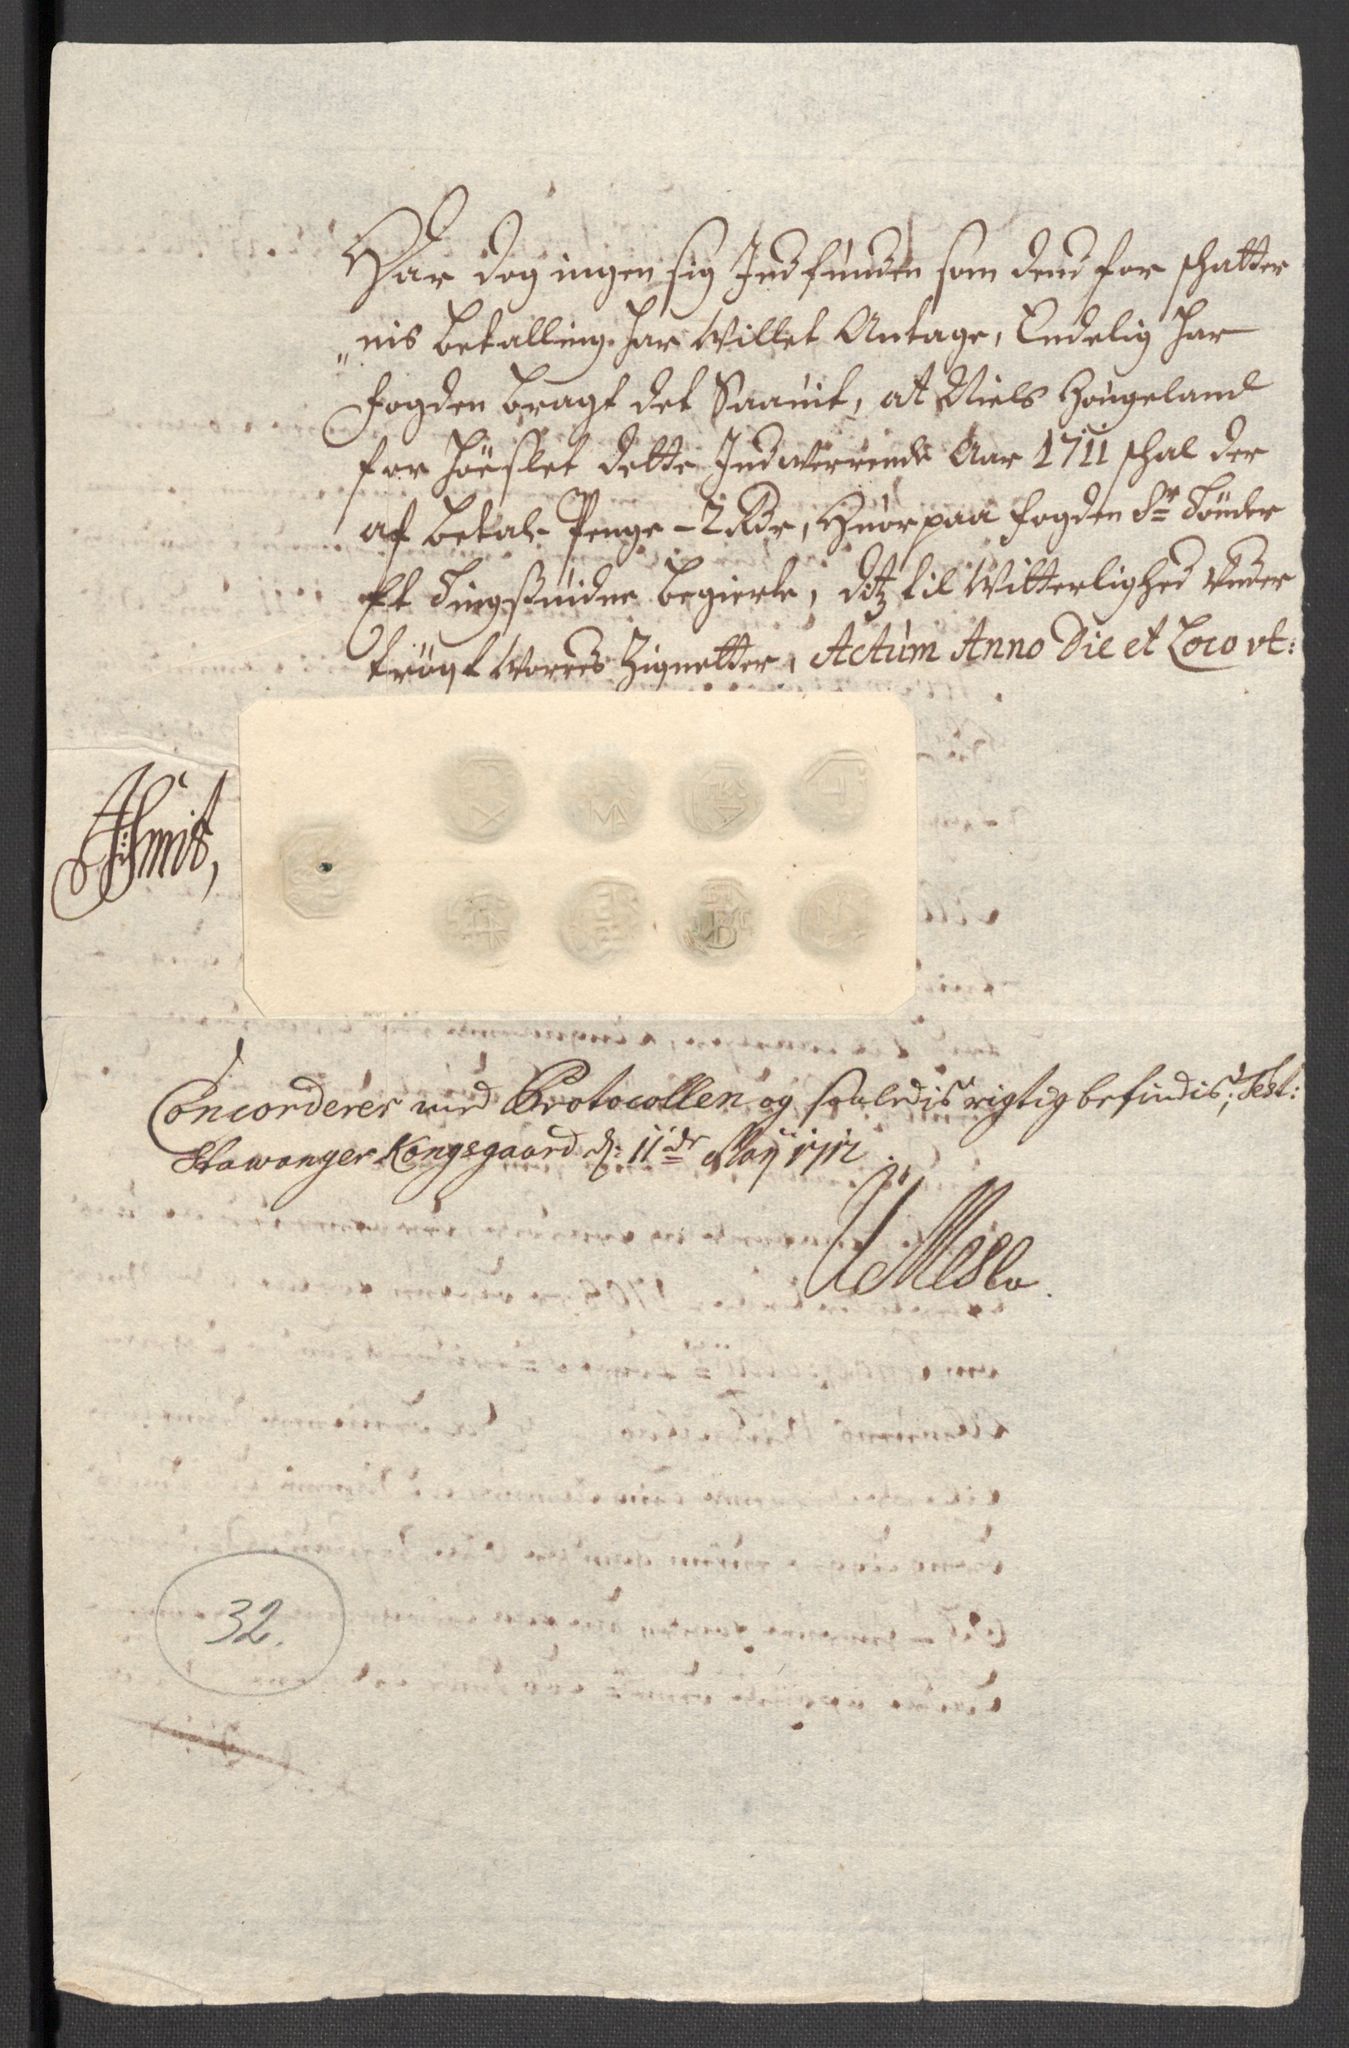 Har dog ingen sig Indfunden som dend for schatter
"nis betalling har Willet Antage, Endelig har
fogden bragt det Saavit, at Niels Hougeland
for Höeslet dette Indwerrende Aar 1711 schal der
af betale Penge - 2 Rdr, Huorpaa fogden Sr Tönder
Et Tingsuidne begierte, ditz til Witterlighed under
trögt Worres Zignetter, Actum Anno Die et Loco vt:
Concorderer med Protocollen og saaledis rigtig befindis, Test:
Stawanger Kongsgaard d: 11de Maij 1712
32.